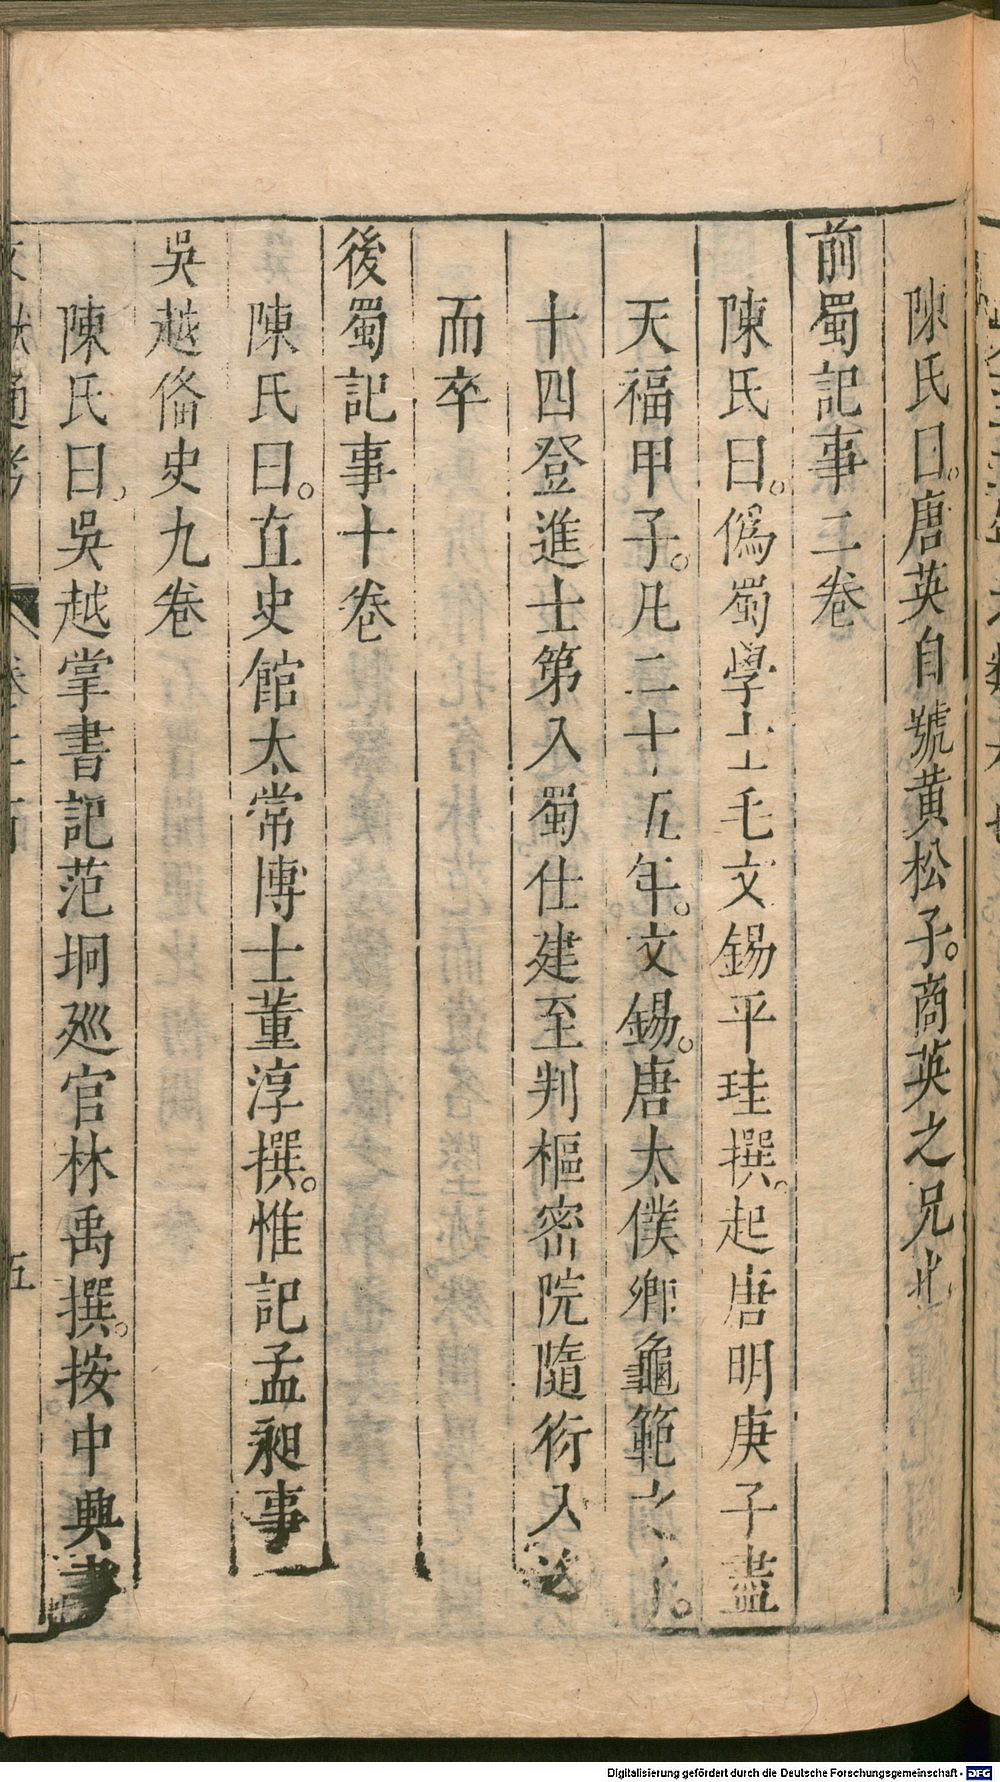 陳氏曰。唐英自號黄松子。商英之兄也
前蜀記事二卷
陳氏曰。僞蜀學士毛文錫平珪撰。起唐明庚子盡
天福甲子。凡二十五年。文錫。唐太僕卿龜範之子。
十四登進士第入蜀仕建至判樞密院隨衍入
而卒
後蜀記事十卷
陳氏曰。直史館太常博士董淳撰。惟記孟昶事
吳越俻史九卷
陳氏曰。吳越掌書記范坰廵官林禹撰。按中興書
通考
五
Digitalisierung gefördert durch die Deutsche Forschungsgemeinschaft - DFG